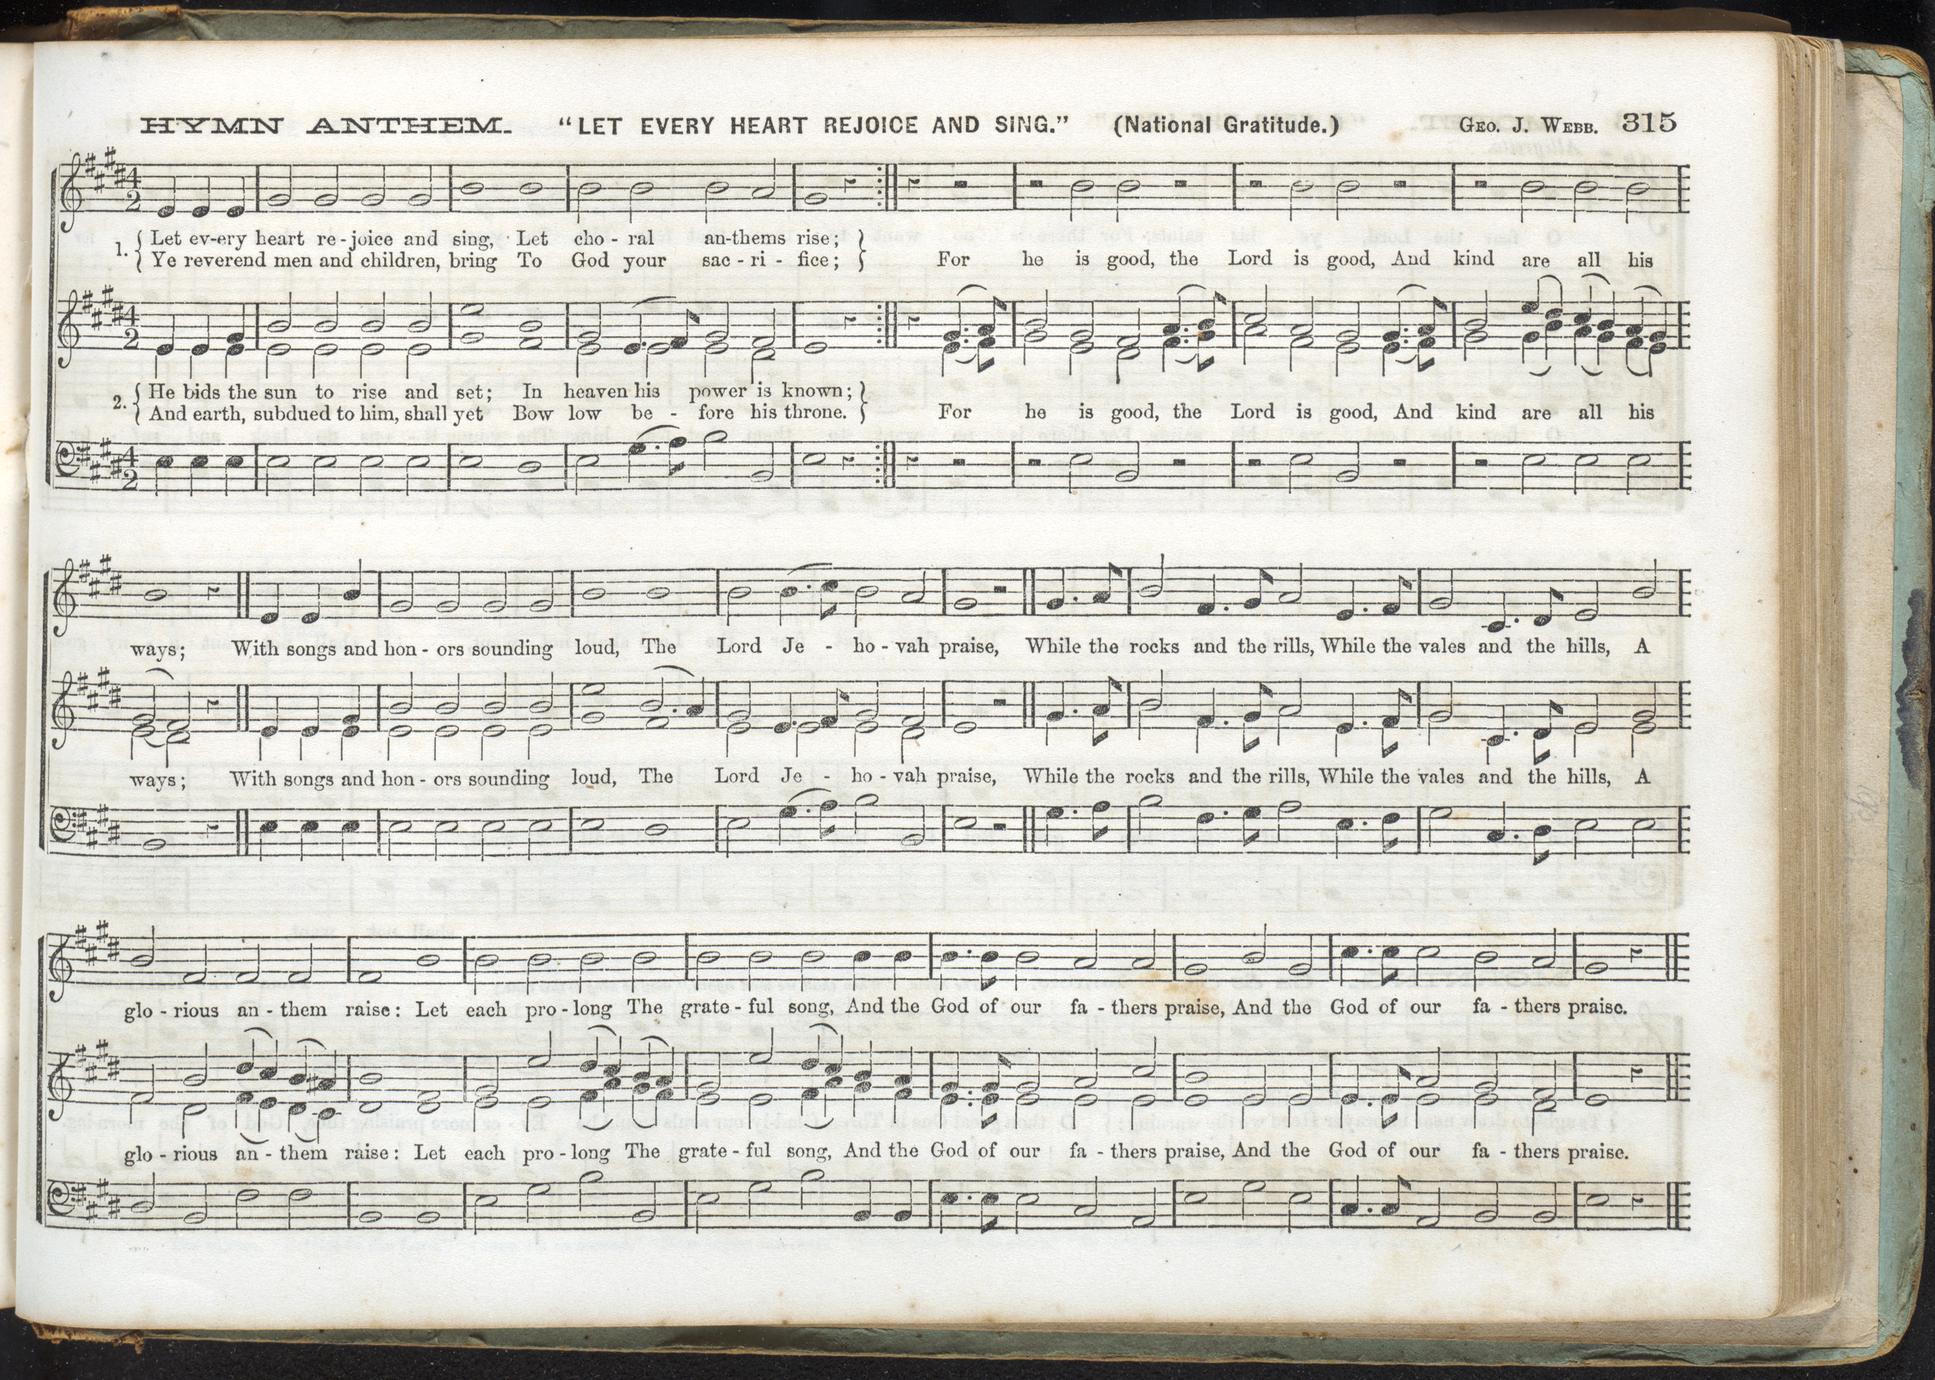 HYMN ANTHEM. "LET EVERY HEART REJOICE AND SING." (National Gratitude.) GEO. J. WEBB. 315
4
2
1. { Let ev-ery heart re-joice and sing, Let cho-ral an-thems rise; }
{ Ye reverend men and children, bring To God your sac-ri-fice; } For he is good, the Lord is good, And kind are all his
4
2
2. { He bids the sun to rise and set; In heaven his power is known; }
{ And earth, subdued to him, shall yet Bow low be-fore his throne. } For he is good, the Lord is good, And kind are all his
4
2
ways; With songs and hon-ors sounding loud, The Lord Je-ho-vah praise, While the rocks and the rills, While the vales and the hills, A
ways; With songs and hon-ors sounding loud, The Lord Je-ho-vah praise, While the rocks and the rills, While the vales and the hills, A
glo-rious an-them raise: Let each pro-long The grate-ful song, And the God of our fa-thers praise, And the God of our fa-thers praise.
glo-rious an-them raise: Let each pro-long The grate-ful song, And the God of our fa-thers praise, And the God of our fa-thers praise.